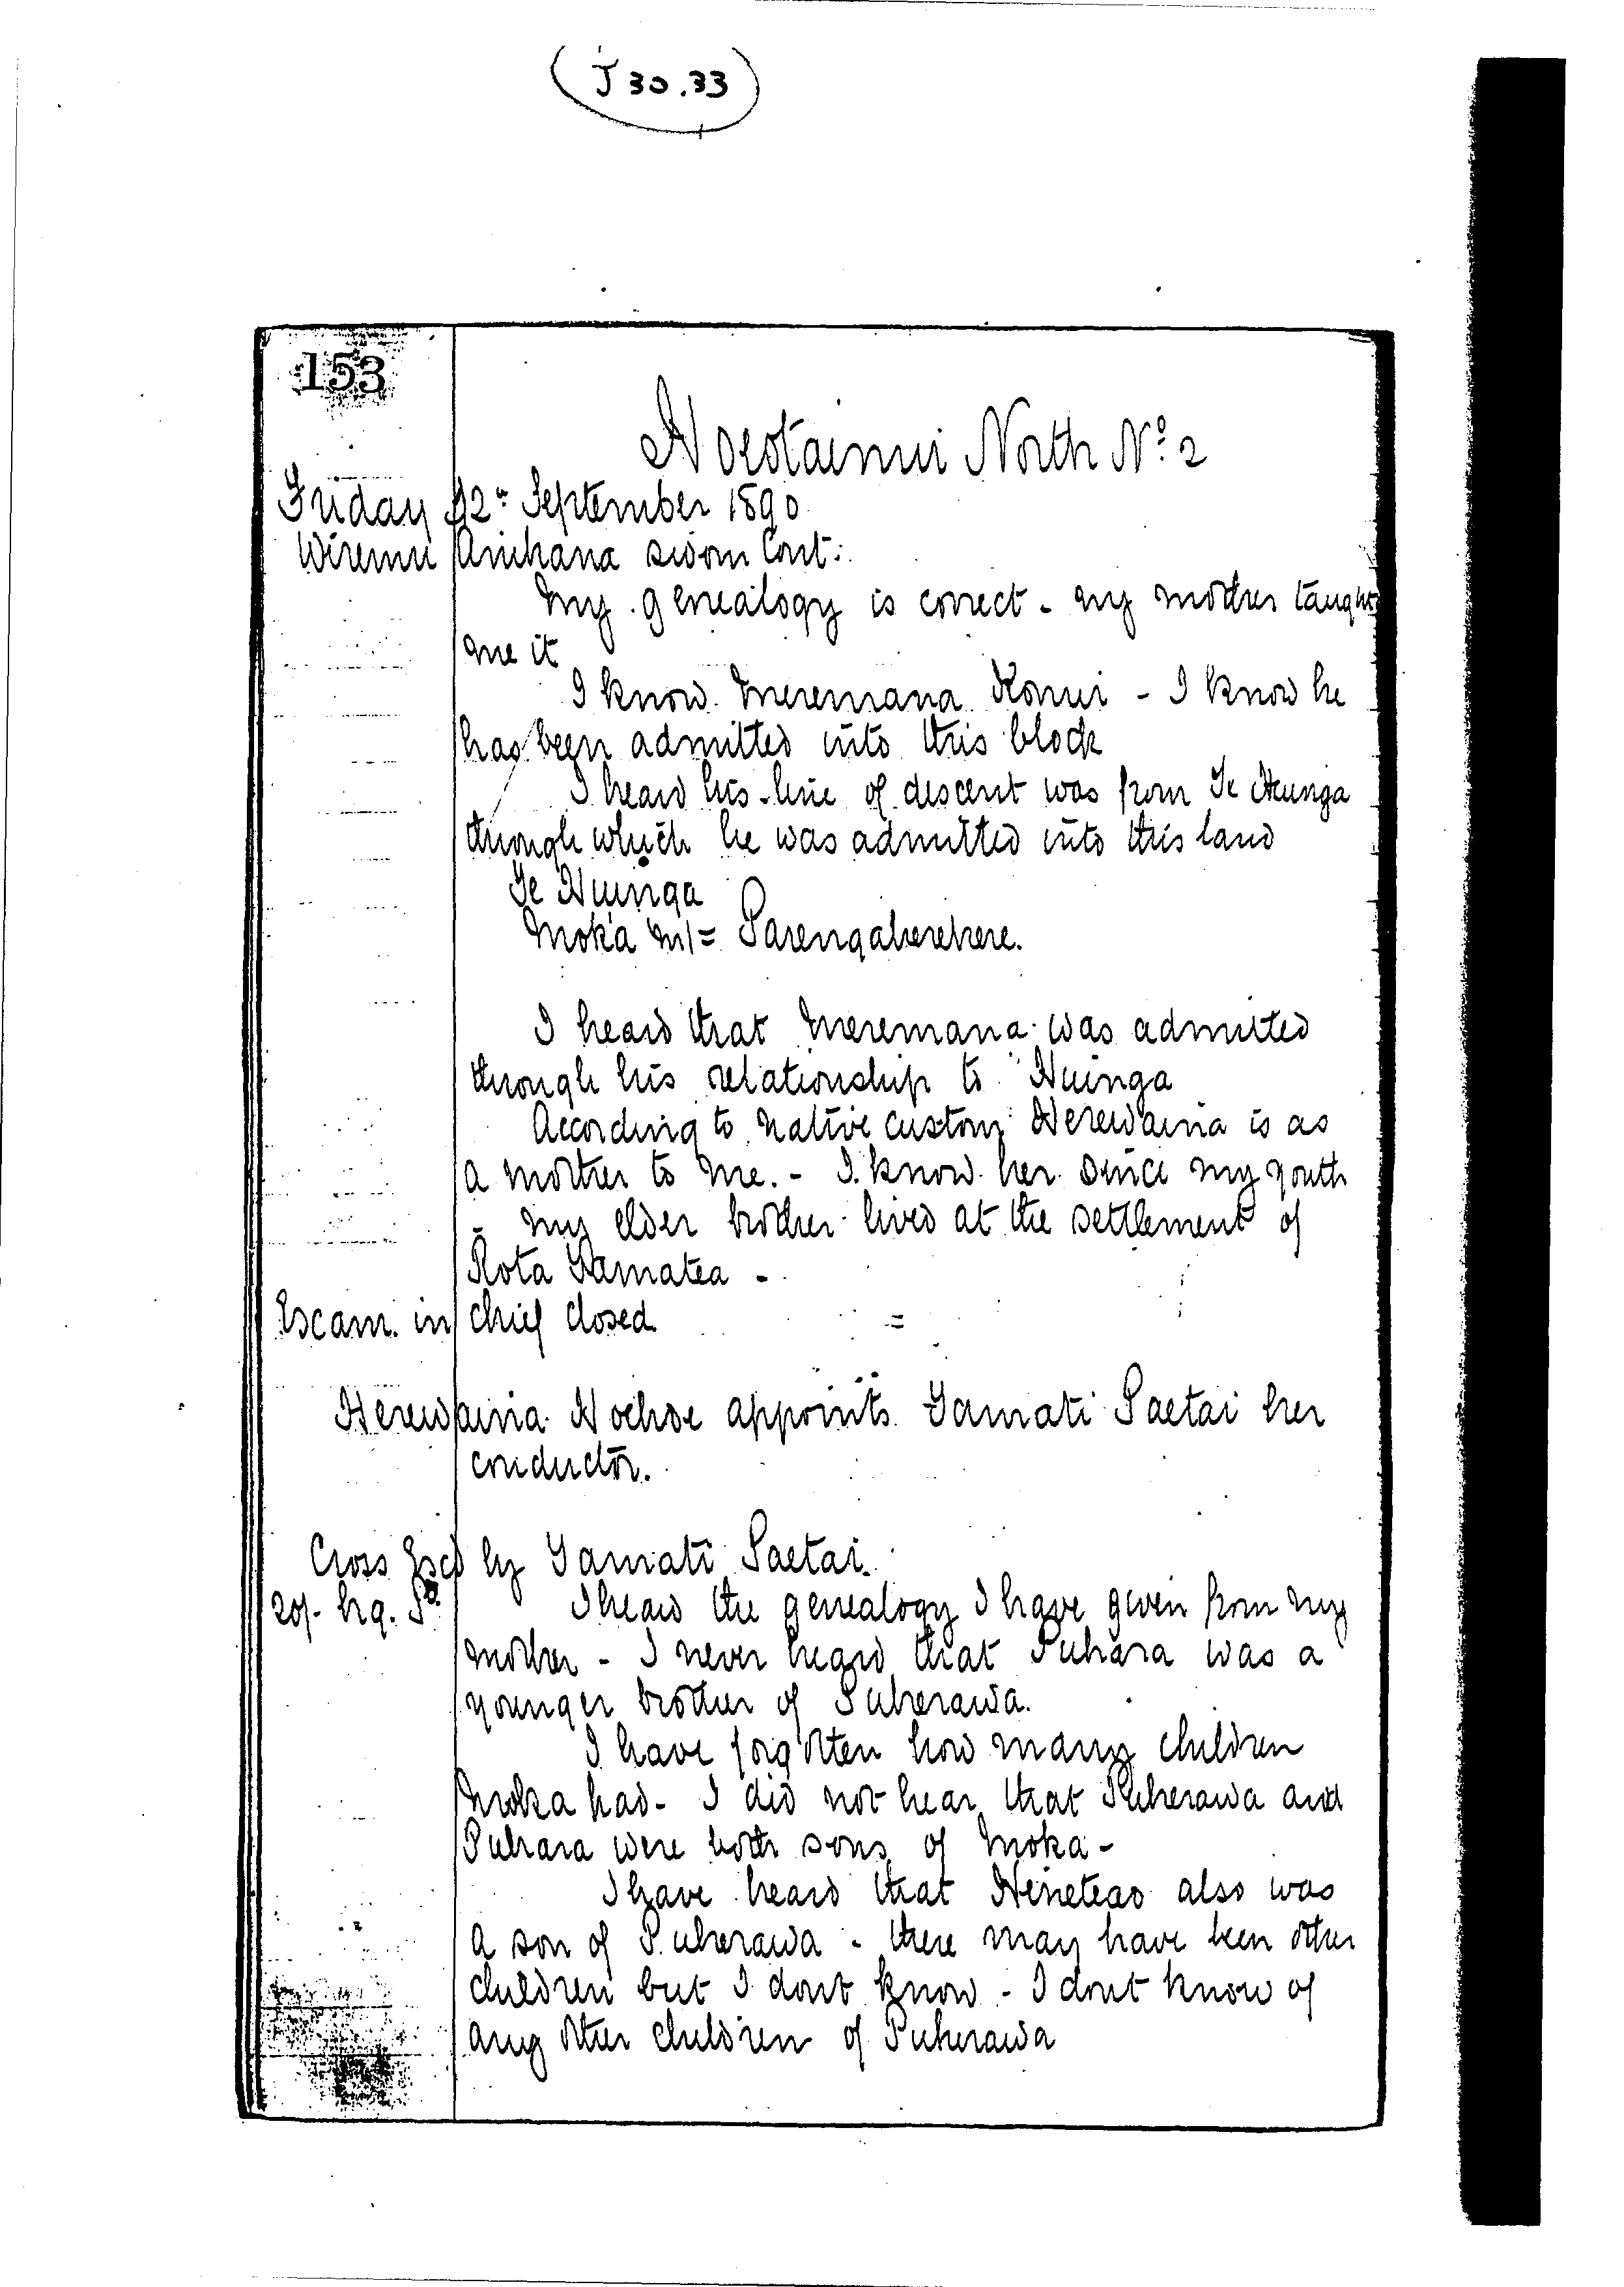 (J 30.33)
153
Horotainui North No. 2
Friday 12th September 1890
Wiremu sworn Cont:
My genealogy is correct - my mother taught
me it
I know Meremana Konui - I know he
has been admitted into this block
I heard his line of descent was from Te Huinga
through which he was admitted into this land
Te Huinga
Moka m/ = Parengaherehere.
I heard that Meremana was admitted
through his relationship to Huinga
According to native custom Herewaina is as
a mother to me. - I know her since my youth
- my elder brother lived at the settlement of
Rota Tamatea -
Exam. in chief closed
Herewaina appoints Tamati Paetai her
conductor.
Cross Exd by Tamati Paetai.
20/- hg. Pd.
I heard the genealogy I have given from my
mother - I never heard that Puhara was a
younger brother of Puherawa.
I have forgotten how many children
Moka had - I did not hear that Puherawa and
Puhara were both sons of Moka -
I have heard that Hineteao also was
a son of Puherawa - there may have been other
children but I dont know - I dont know of
any other children of Puherawa